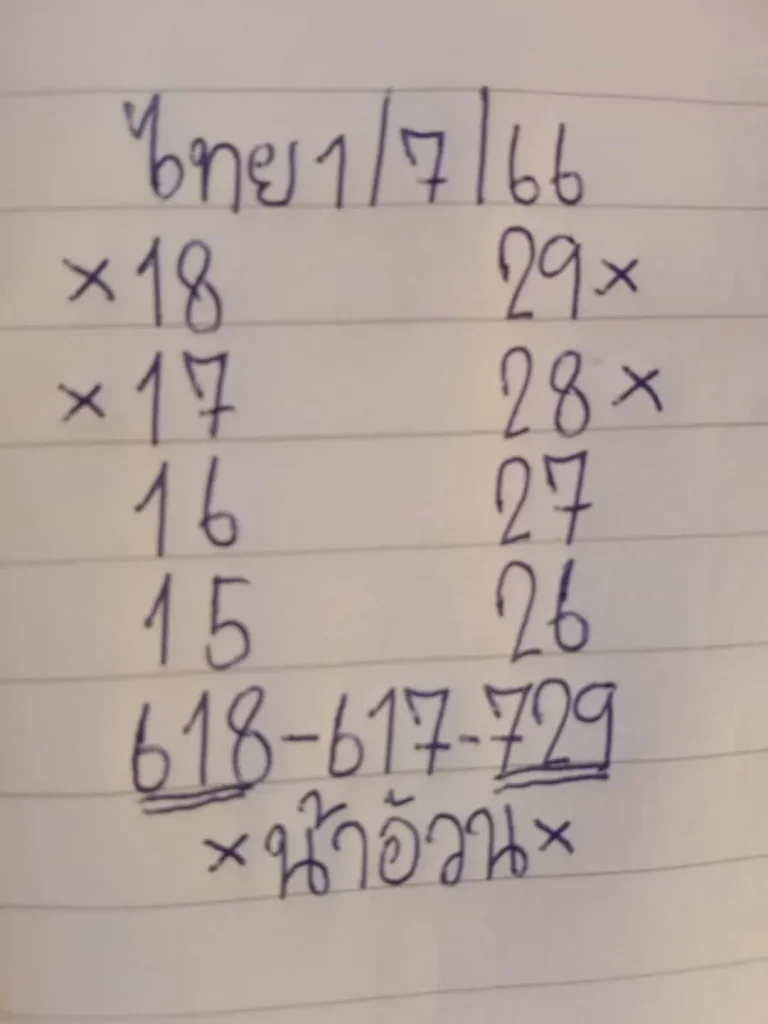 ไทย 1/7/66
×18 29×
×17 28×
16 27
15 26
618-617-729
×น้าอ้วน×